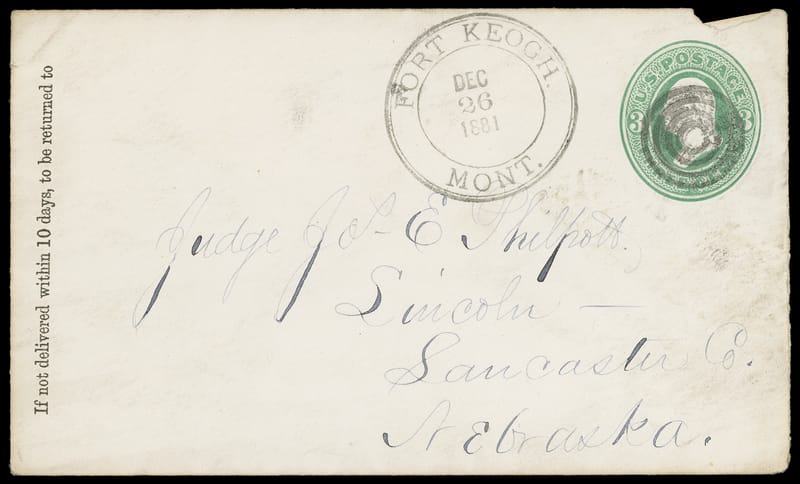 If not delivered within 10 days, to be returned to
FORT KEOGH.
DEC
26
1881
MONT.
U.S. POSTAGE
3 3
Judge J. E Philpott.
Lincoln —
Lancaster Co.
Nebraska.